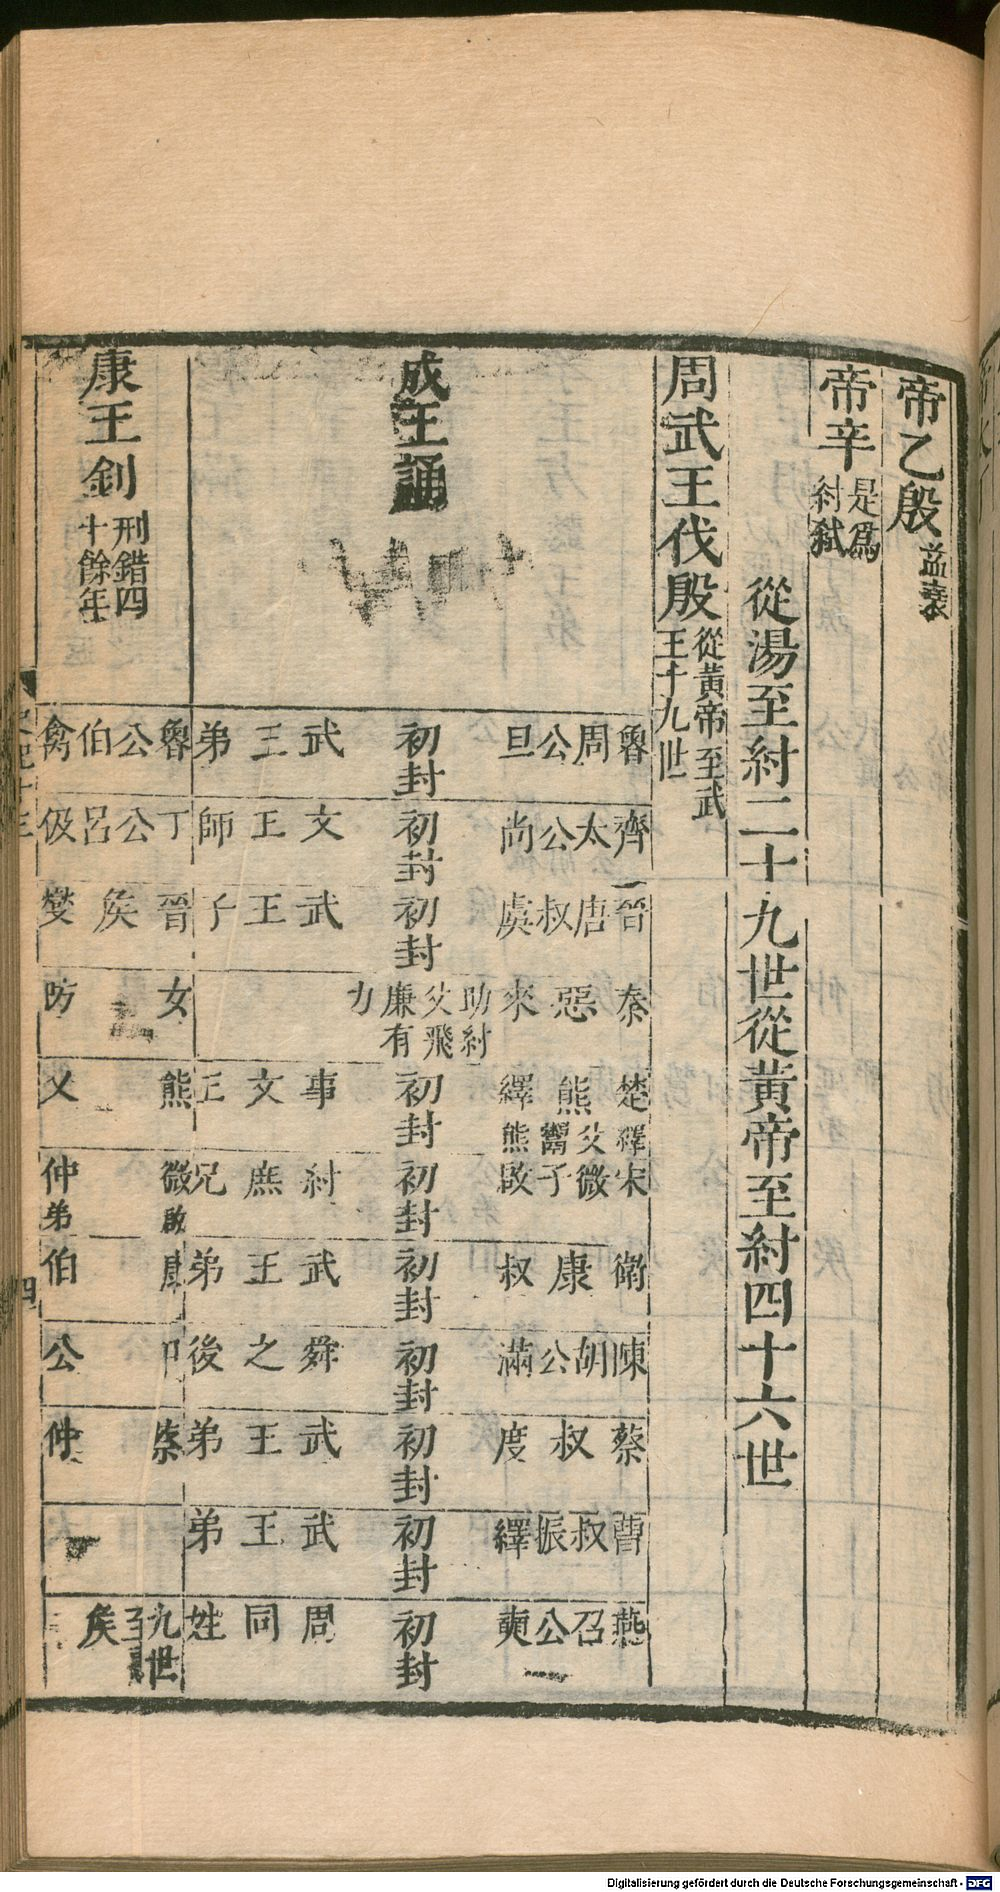 帝乙殷益衰
帝辛是爲紂弒
從湯至紂二十九世從黃帝至紂四十六世
周武王伐殷從黃帝至武王十九世
成王誦
魯周公旦 初封 武王弟
齊太公尚 初封 文王師
晉唐叔虞 初封 武王子
秦惡來 助紂父飛廉有力
楚熊繹 繹父熊 初封 事文王
宋微子啟 初封 紂庶兄
衛康叔 初封 武王弟
陳胡公滿 初封 舜之後
蔡叔度 初封 武王弟
曹叔振繹 初封 武王弟
燕召公奭 初封 周同姓
康王釗刑錯四十餘年
魯公伯禽
丁公呂伋
晉侯燮
女防
熊乂
微仲啟弟
康伯
公
蔡仲
九世至侯
四
Digitalisierung gefördert durch die Deutsche Forschungsgemeinschaft - DFG